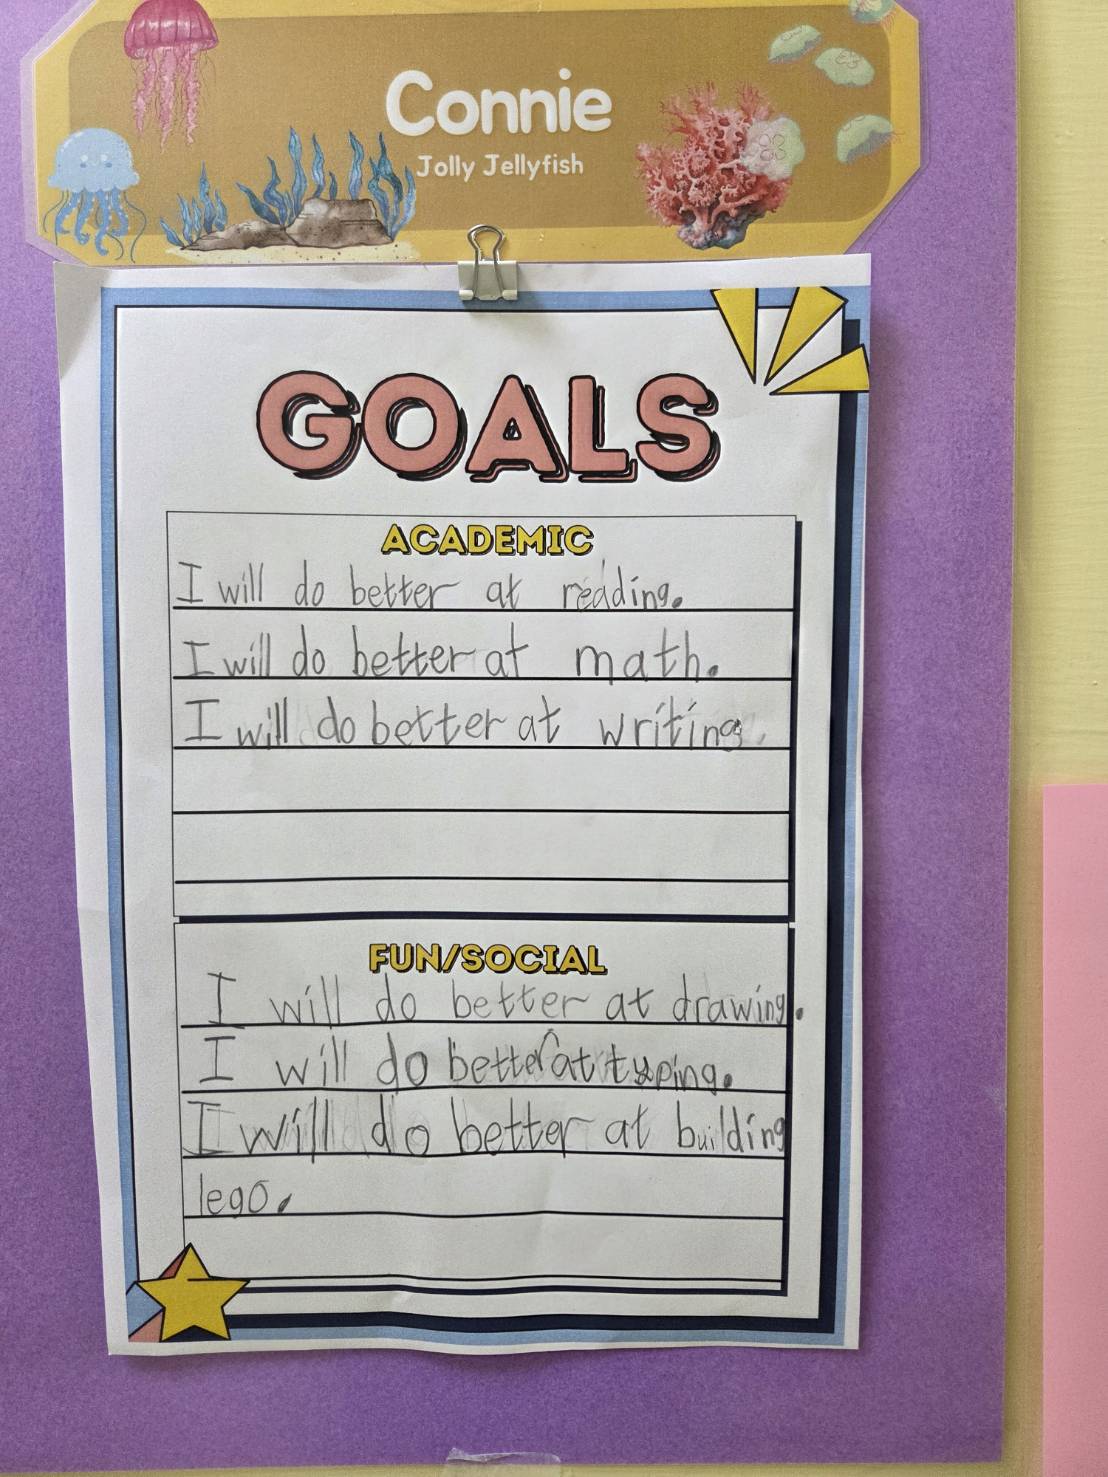 Connie
Jolly Jellyfish
GOALS
ACADEMIC
I will do better at reading.
I will do better at math.
I will do better at writing.
FUN/SOCIAL
I will do better at drawing.
I will do better at typing.
I will do better at building
lego.